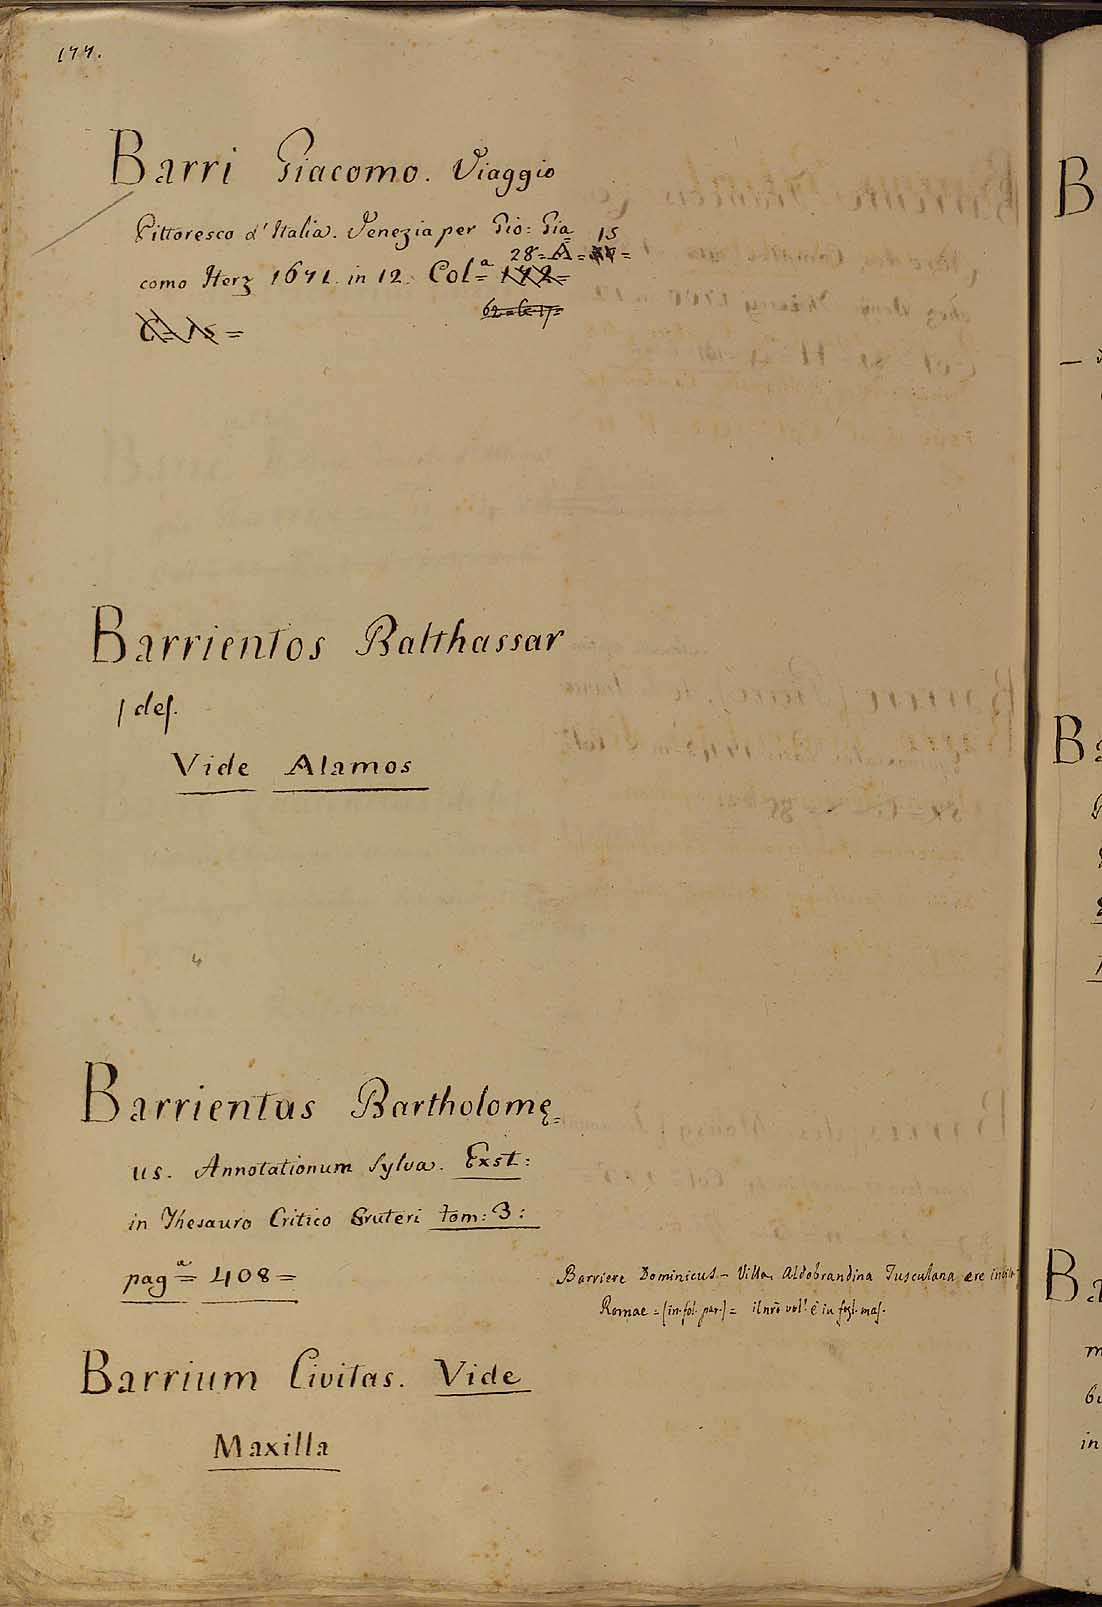 177.
Barri Giacomo. Viaggio
Pittoresco d'Italia. Venezia per Gio: Gia
como Herz 1671. in 12. Col.a 172
28 = A = 15
62 = C. 17 =
C = 15 =
Barrientos Balthassar
del.
Vide Alamos
Barrientus Bartholomę
us. Annotationum Sylva. Exst:
in Thesauro Critico Gruteri tom: 3:
pag.a = 408 =
Barriere Dominicus – Villa Aldobrandina Tusculana ere
Romae = (in fol. par.) = il nr̃o vol. è in fogl. mas.
Barrium Civitas. Vide
Maxilla
B
Ba
Ba
in